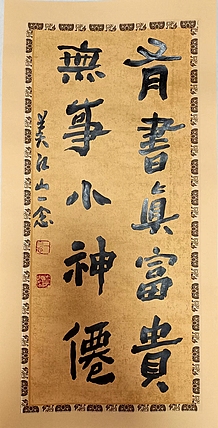 有書真富貴
無事小神僊